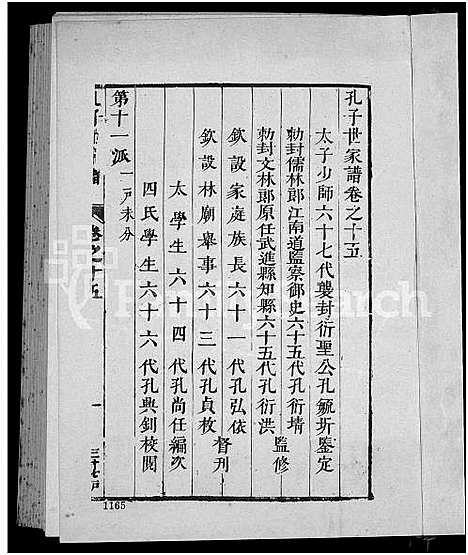 孔子世家譜卷之十五
太子少師六十七代襲封衍聖公孔毓圻鑒定
勑封儒林郎江南道監察御史六十五代孔衍㙷
勑封文林郎原任武進縣知縣六十五代孔衍洪
監修
欽設家庭族長六十一代孔弘依
欽設林廟舉事六十三代孔貞枚
督刊
太學生六十四代孔尚任編次
四氏學生六十六代孔興釗校閱
第十一派一戶未分
卷之十五
一
三十七戶
1165
FamilySearch